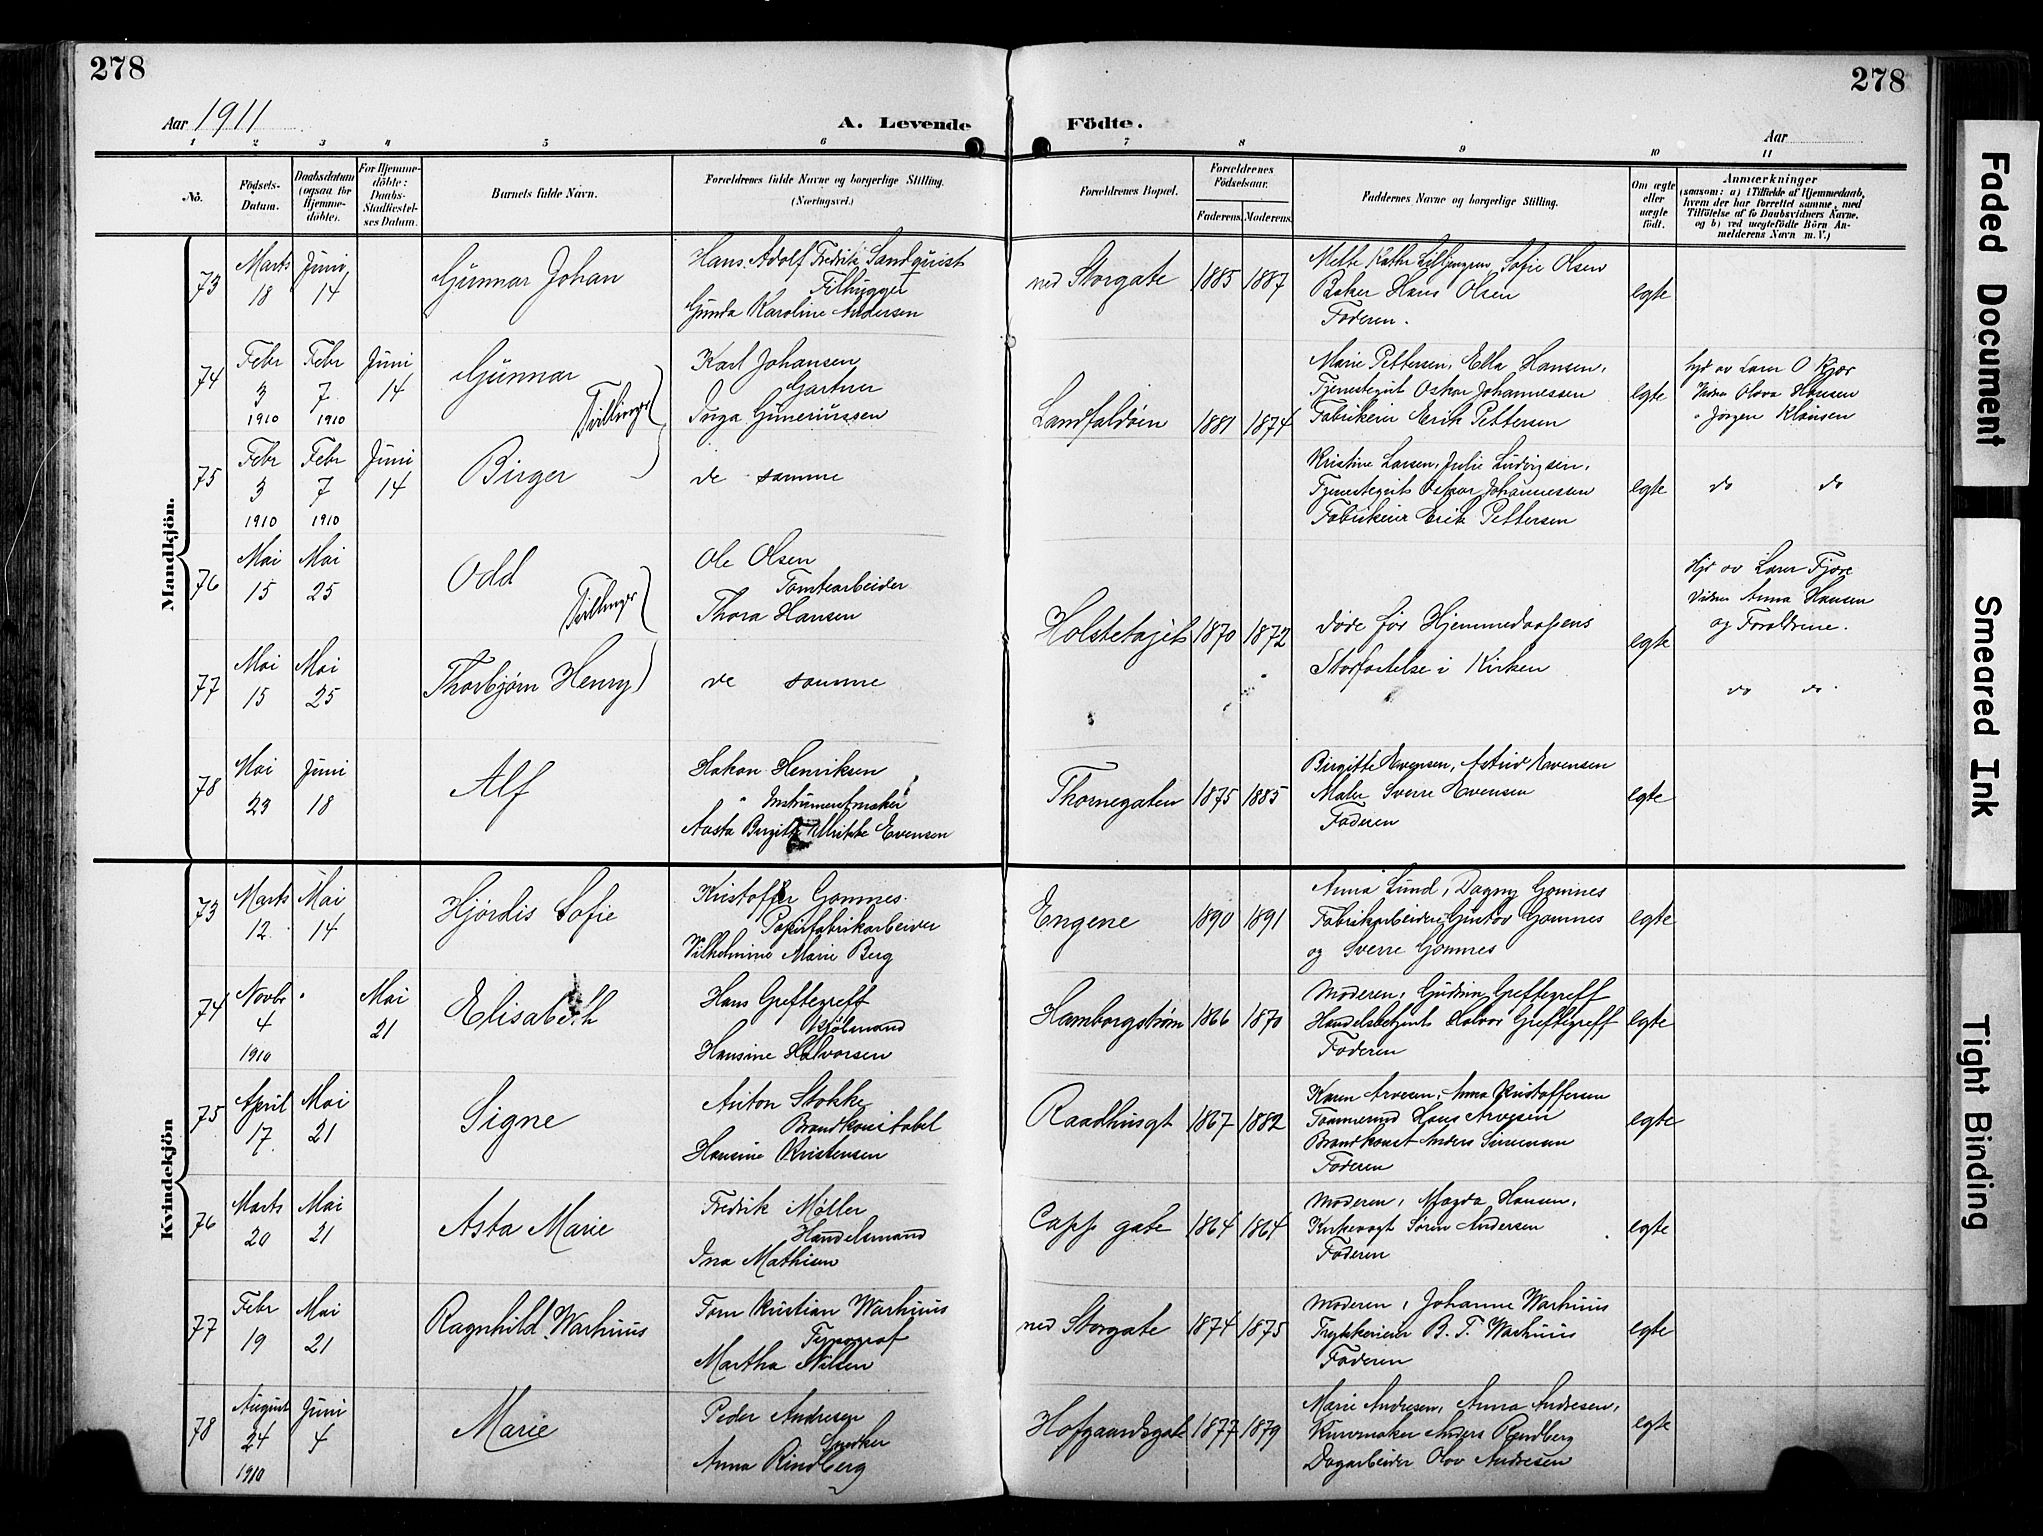 278
278
Aar 1911
A. Levende Födte.
Aar
1 2 3 4 5 6 7 8 9 10 11
No.
Födsels-Datum.
Daabsdatum (ogsaa for Hjemmedöbte).
For Hjemmedöbte: Daabs-Stadfæstelses Datum.
Barnets fulde Navn.
Forældrenes fulde Navne og borgerlige Stilling. (Næringsvei.)
Forældrenes Bopæl.
Forældrenes Födselsaar.
Faderens. Moderens.
Faddernes Navne og borgerlige Stilling.
Om ægte eller uægte födt.
Anmærkninger
(saasom: a) i Tilfælde af Hjemmedaab, hvem der har forrettet samme, med Tilföielse af to Daabsvidners Navne, og b) ved uægtefödte Börn Anmelderens Navn m. V.)
Mandkjön.
73 Marts 18 Juni 14 Gunnar Johan
Hans Adolf Fredrik Sandquist
Filhugger
Gunda Karoline Andersen
ned Storgate 1885 1887
Mette Kathr Liljengren, Sofie Olsen
Baker Hans Olsen
Faderen.
egte
74 Febr 3 1910 Febr 7 1910 Juni 14 Gunnar
Tvillinger
Karl Johansen
Gartner
Inga Guneriussen
Landfaldøen 1881 1874
Marie Pettersen, Ella Hansen,
Tjenestegut Oskar Johannessen
Fabrikeier Erik Pettersen
egte
hjd av Lærer O Kjær
Vidner Olava Hansen
" Jørgen Klausen
75 Febr 3 1910 Febr 7 1910 Juni 14 Birger
de samme
Kristine Larsen, Julie Ludvigsen,
Tjenestegut Oskar Johannessen
Fabrikeier Erik Pettersen
egte
do do
76 Mai 15 Mai 25 Odd
Tvillinger
Ole Olsen
Tomtearbeider
Thora Hansen
Holstetajet 1870 1872
døde før Hjemmedaabens
Stadfæstelse i Kirken
egte
Hjd av Lærer Fjære
Vidner Anna Hansen
og Forældrene.
77 Mai 15 Mai 25 Thorbjørn Henry
de samme
do do
78 Mai 23 Juni 18 Alf
Hakon Henriksen
Instrumentmaker
Aasta Birgitte Ulrikke Evensen
Thornegaten 1875 1885
Birgitte Evensen, Astrid Evensen
Maler Sverre Evensen
Faderen
egte
Kvindekjön
73 Marts 12 Mai 14 Hjørdis Sofie
Kristoffer Gomnes
Papirfabrikarbeider
Vilhelmine Marie Berg
Engene 1890 1891
Anna Lund, Dagny Gomnes
Fabrikarbeidere Gustav Gomnes
og Sverre Gomnes
egte
74 Novbr 4 1910 Mai 21 Elisabeth
Hans Greftegreff
Kjølmand
Hansine Halvorsen
Hamborgstrøm 1866 1870
Moderen, Gudrun Greftegreff
Handelsbetjent Halvor Greftegreff
Faderen
egte
75 April 17 Mai 21 Signe
Anton Stokke
Brandkonstabel
Hansine Kristensen
Raadhusgt 1867 1882
Karen Arvesen, Anna Kristoffersen
Tømmermd Hans Arvesen
Brandkonst Anders Simensen
Faderen
egte
76 Marts 20 Mai 21 Asta Marie
Fredrik Møller
Handelsmand
Ina Mathisen
Capp gate 1864 1864
Moderen, Magda Hansen,
Kirkevagt Søren Andersen
Faderen
egte
77 Febr 19 Mai 21 Ragnhild Warhuus
Tom Kristian Warhuus
Typograf
Martha Nilsen
ned Storgate 1874 1875
Moderen, Johanne Warhuus
Trykkerieier B. T. Warhuus
Faderen
egte
78 August 24 1910 Juni 4 Marie
Peder Andresen
Snedker
Anna Rindberg
Hofgaardsgate 1877 1879
Marie Andresen, Anna Andresen,
Kurvmaker Anders Rindberg
Dagarbeider Olav Andresen
egte
Faded Document
Smeared Ink
Tight Binding